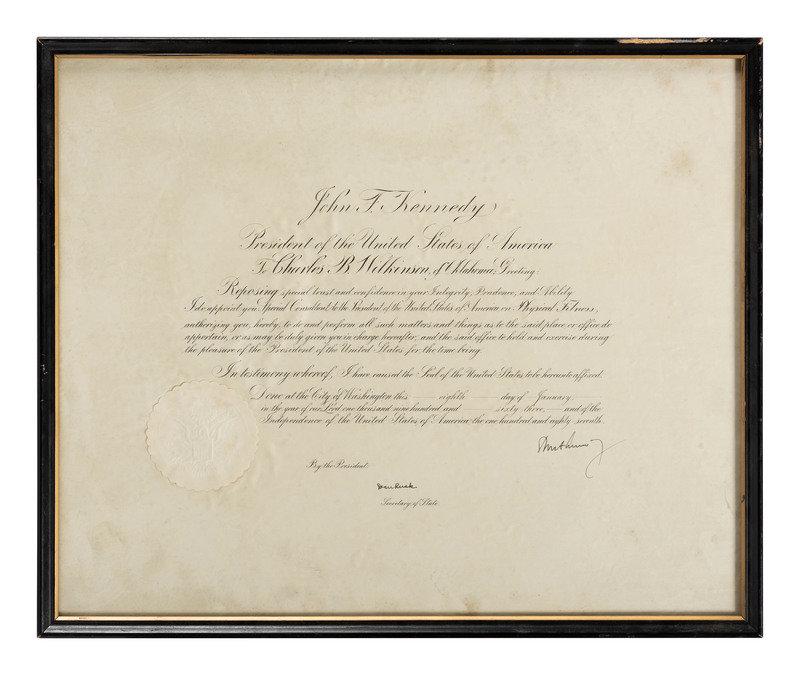 John F. Kennedy
President of the United States of America
To Charles B. Wilkinson, of Oklahoma, Greeting:
Reposing special trust and confidence in your Integrity, Prudence, and Ability
I do appoint you Special Consultant to the President of the United States of America on Physical Fitness,
authorizing you, hereby, to do and perform all such matters and things as to the said place or office do
appertain, or as may be duly given you in charge hereafter, and the said office to hold and exercise during
the pleasure of the President of the United States for the time being.
In testimony whereof, I have caused the Seal of the United States to be hereunto affixed.
Done at the City of Washington this eighth day of January
in the year of our Lord one thousand nine hundred and sixty three, and of the
Independence of the United States of America the one hundred and eighty seventh.
By the President:
Dean Rusk
Secretary of State